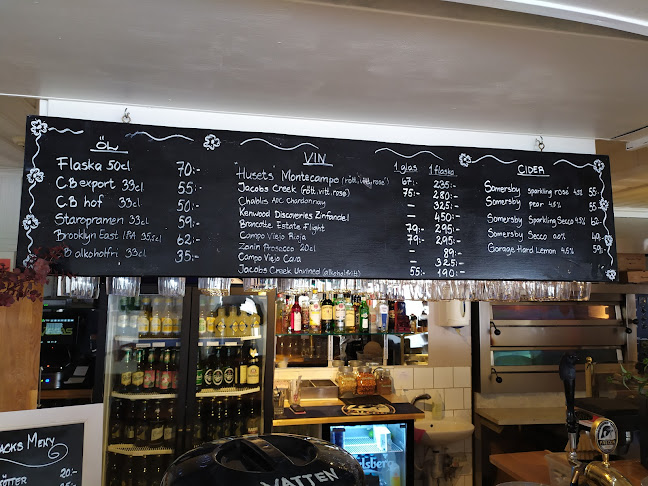 ÖL
Flaska 50cl 70:-
C.B export 33cl 55:-
C.B hof 33cl 50:-
Staropramen 33cl 59:-
Brooklyn East IPA 35,5cl 62:-
CB alkoholfri 33cl 35:-
VIN 1 glas 1 flaska
"Husets" Montecampo (rött, vitt, rosé) 67:- 235:-
Jacobs Creek (rött, vitt, rosé) 75:- 280:-
Chablis AOC Chardonnay - 325:-
Kenwood Discoveries Zinfandel - 450:-
Brancotte Estate Flight 79:- 295:-
Campo Viejo Rioja 79:- 295:-
Zonin Prosecco 20cl - 89:-
Campo Viejo Cava - 325:-
Jacobs Creek Unvined (alkoholfritt) 55:- 190:-
CIDER
Somersby sparkling rosé 4,5% 55:-
Somersby pear 4,5% 55:-
Somersby Sparkling Secco 4,5% 62:-
Somersby Secco 0,0% 49:-
Garage Hard Lemon 4,5% 59:-
ACKS MENY
ÖTTER 20:-
VATTEN
lsberg